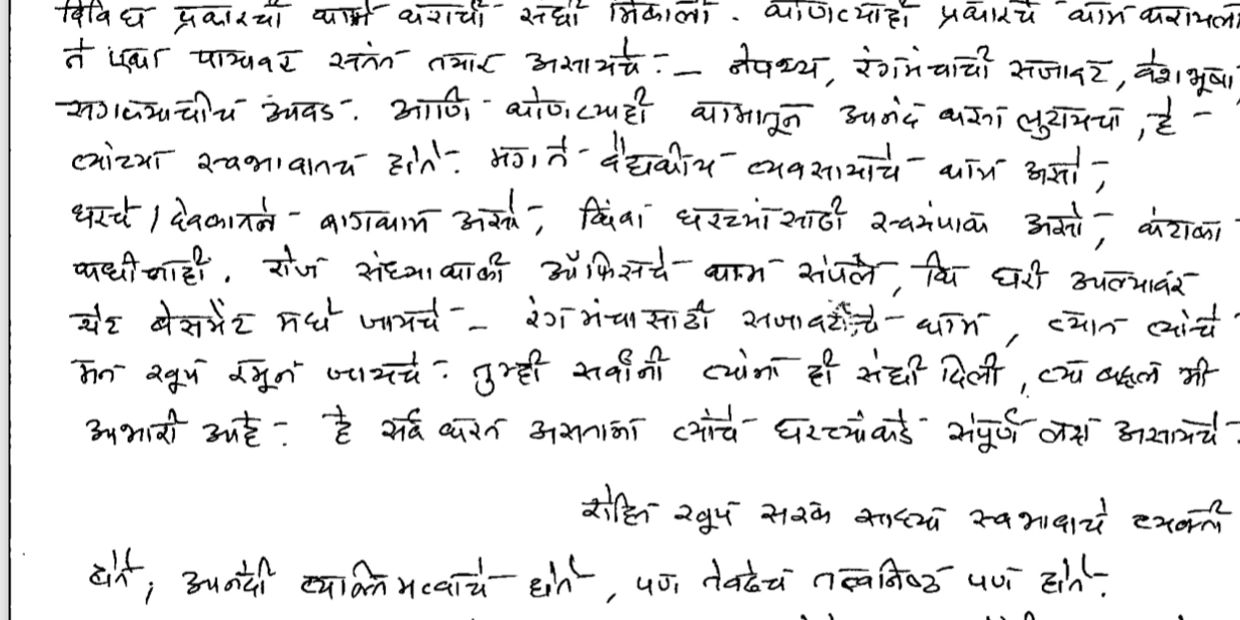 विविध प्रकारची कामे करायची संधी मिळाली. कोणत्याही प्रकारचे काम करायला
ते एका पायावर तयार असायचे. – नेपथ्य, रंगमंचाची सजावट, वेशभूषा,
सगळ्याचीच आवड. आणि कोणत्याही कामातून आनंद कसा लुटायचा, हे
त्यांच्या स्वभावातच होते. मग ते वैद्यकीय व्यवसायाचे काम असो,
घरचे / देवळातले बागकाम असो, किंवा घरच्यांसाठी स्वयंपाक असो, कंटाळा
कधी नाही. रोज संध्याकाळी ऑफिसचे काम संपले, कि घरी आल्यावर
थेट बेसमेंट मधे जायचे – रंगमंचासाठी सजावटीचे काम, त्यात त्यांचे
मन खूप रमून जायचे. तुम्ही सर्वांनी त्यांना ही संधी दिली, त्या बद्दल मी
आभारी आहे. हे सर्व करत असताना त्यांचे घरच्यांकडे संपूर्ण लक्ष असायचे.
रोहित खूप सरळ साध्या स्वभावाचे व्यक्ती
होते; आनंदी व्यक्तिमत्वाचे होते, पण तेवढेच तत्वनिष्ठ पण होते.